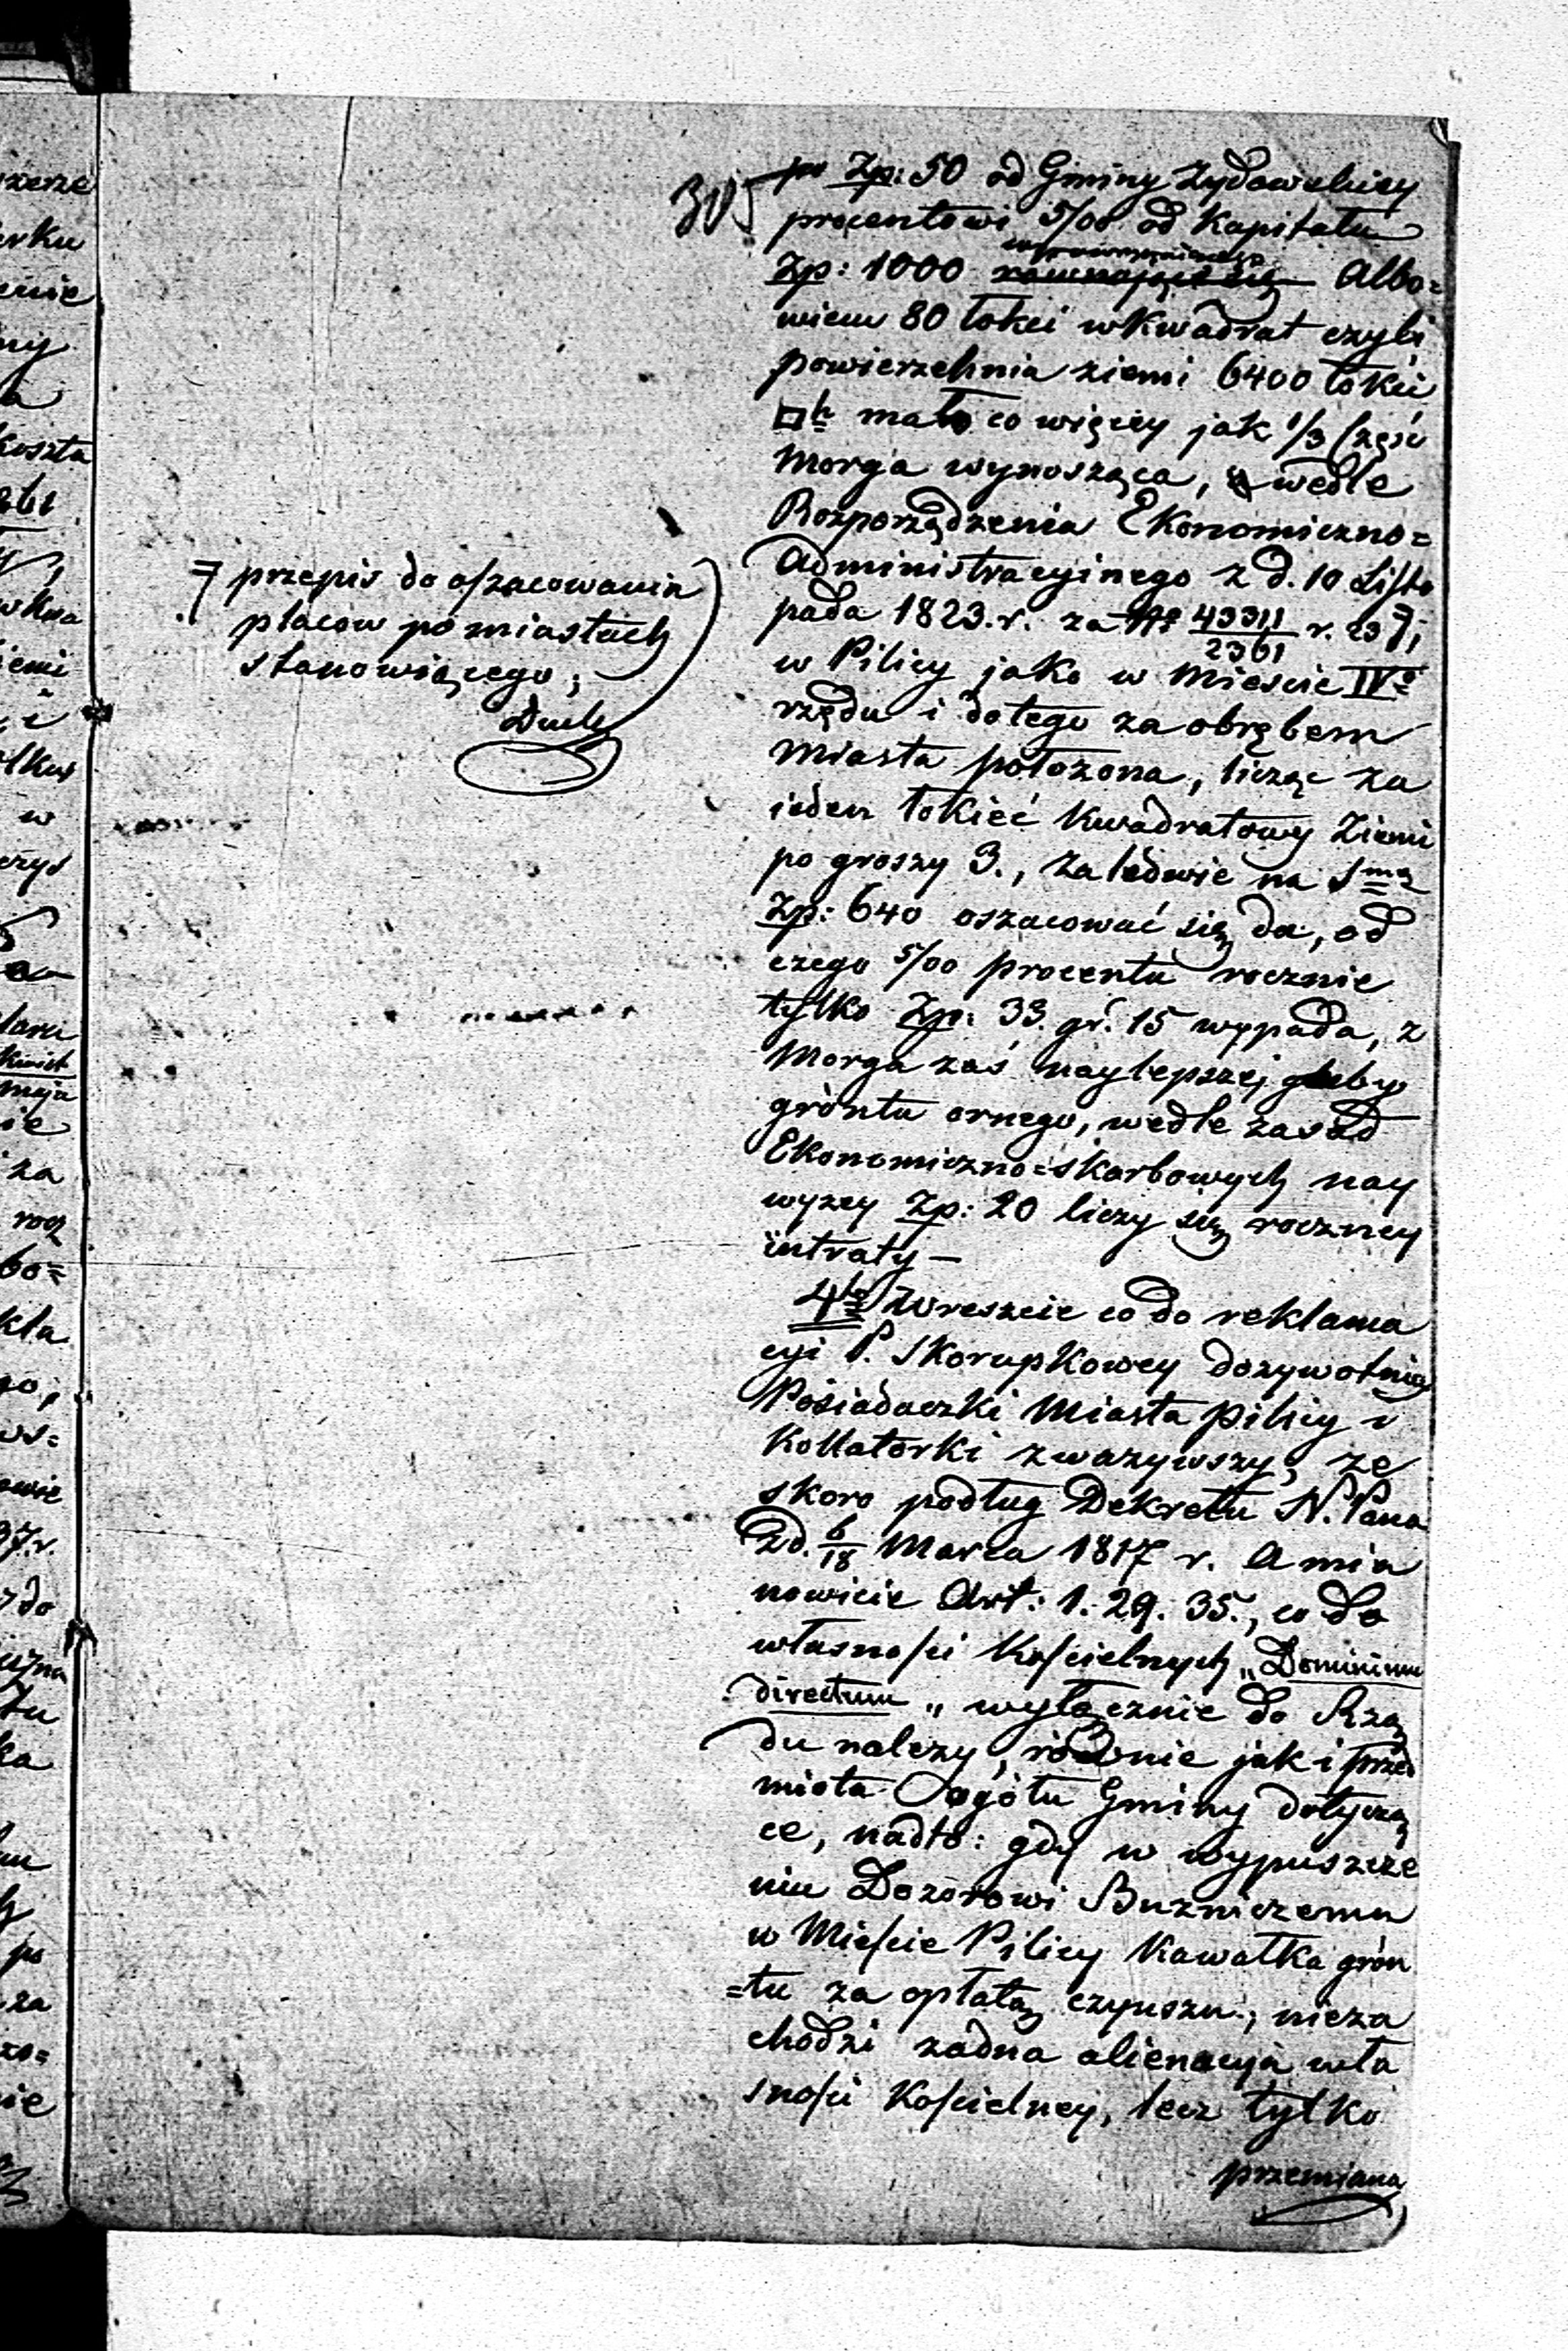 305
po Zp: 50 od Gminy Zydowskiey
procentowi 5/00 od Kapitału
Zp: 1000 Albo=
wiem 80 łokci w Kwadrat czyli
powierzchnia ziemi 6400 łokci
□h mało co więcey jak 1/3 część
Morga wynosząca, wedle
Rozporządzenia Ekonomiczno=
Administracyinego z d. 10 Listo
pada 1823. r. za No 43311/2361 r. 23 7;
w Pilicy jako w Mieście IVo
rzędu i do tego za obrębem
Miasta położona, licząc za
ieden łokieć Kwadratowy Ziemi
po groszy 3., zaledwie na Smę
Zp: 640 oszacować się da, od
czego 5/00 procentu rocznie
tylko Zp: 33. gr. 15 wypada, z
Morga zaś naylepszej gleby
gróntu ornego, wedle zasad
Ekonomiczno=Skarbowych nay
wyzey Zp: 20 liczy się roczney
intraty —
4to Wreszcie co do reklama
cyi P. Skorupkowey dozywotniey
Posiadaczki Miasta Pilicy i
Kollatorki zwazywszy, ze
skoro podług Dekretu N. Pana
z d. 6/18 Marca 1817 r. a mia
nowicie Art: 1. 29. 35., co do
własności Kościelnych „Dominium
directum„ wyłącznie do Rzą
du nalezy, równie jak i przed
miota Ogółu Gminy dotyczą
ce, nadto: gdy w wypuszcze
niu Dozorowi Buzniczemu
w Mieście Pilicy Kawałka grón
=tu za opłatą czynszu, nieza
chodzi zadna alienacyja wła
sności Kościelney, lecz tylko
przemiana
7 przepis do oszacowania
placow po miastach
stanowiącego;